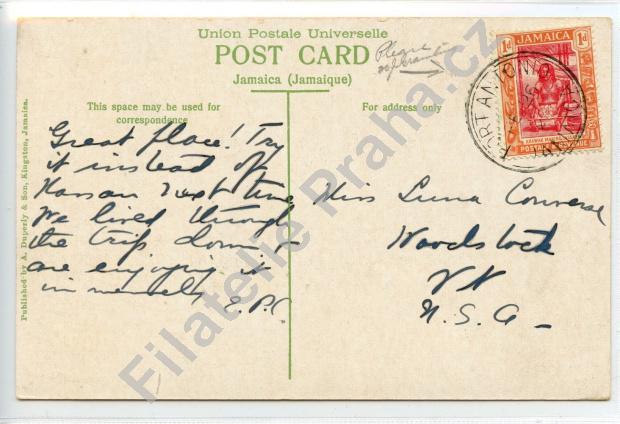 Union Postale Universelle
POST CARD
Jamaica (Jamaïque)
Please
This space may be used for
correspondence
For address only
Great place! Try
it instead of
next time
We lived through
the trip down -
are enjoying it
immensely E.P.C.
Miss Luna Converse
Woodstock
Vt
U.S.A -
Published by A. Duperly & Son, Kingston, Jamaica.
1d JAMAICA 1d
POSTAGE & REVENUE
PORT ANTONIO
Filatelie Praha.cz